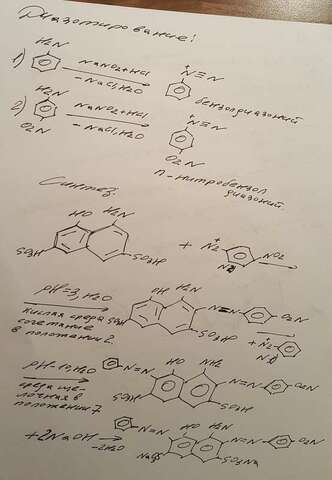 Диазотирование!
H₂N
1) NaNO₂+HCl
-NaCl, H₂O
N≡N
+
бензолдиазоний
H₂N
2) NaNO₂+HCl
-NaCl, H₂O
O₂N
+
N≡N
O₂N
п-нитробензол
диазоний.
Синтез:
HO H₂N
SO₃H SO₃H
+ N₂ NO₂
+
pH=3, H₂O
кислая среда
сочетание
в положении 2.
H₂N
SO₃H SO₃H
N=N O₂N
+ N₂
+
pH-10, H₂O
среда ще-
лочная в
положении 7
N=N HO NH₂ N=N O₂N
SO₃H SO₃H
+2NaOH
-2H₂O
N=N HO H₂N N=N O₂N
SO₃Na